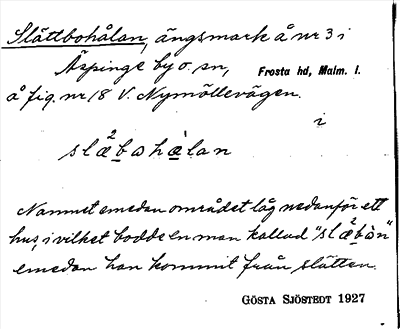 Slättbohålan, ängsmark å nr 3 i
Äspinge by o. sn, Frosta hd, Malm. l.
å fig. nr 18 V. Nymöllevägen.
i
slæ²bohålan
Namnet emedan området låg nedanför ett
hus, i vilket bodde en man kallad "slæ²bòn"
emedan han kommit från slätten.
GÖSTA SJÖSTEDT 1927